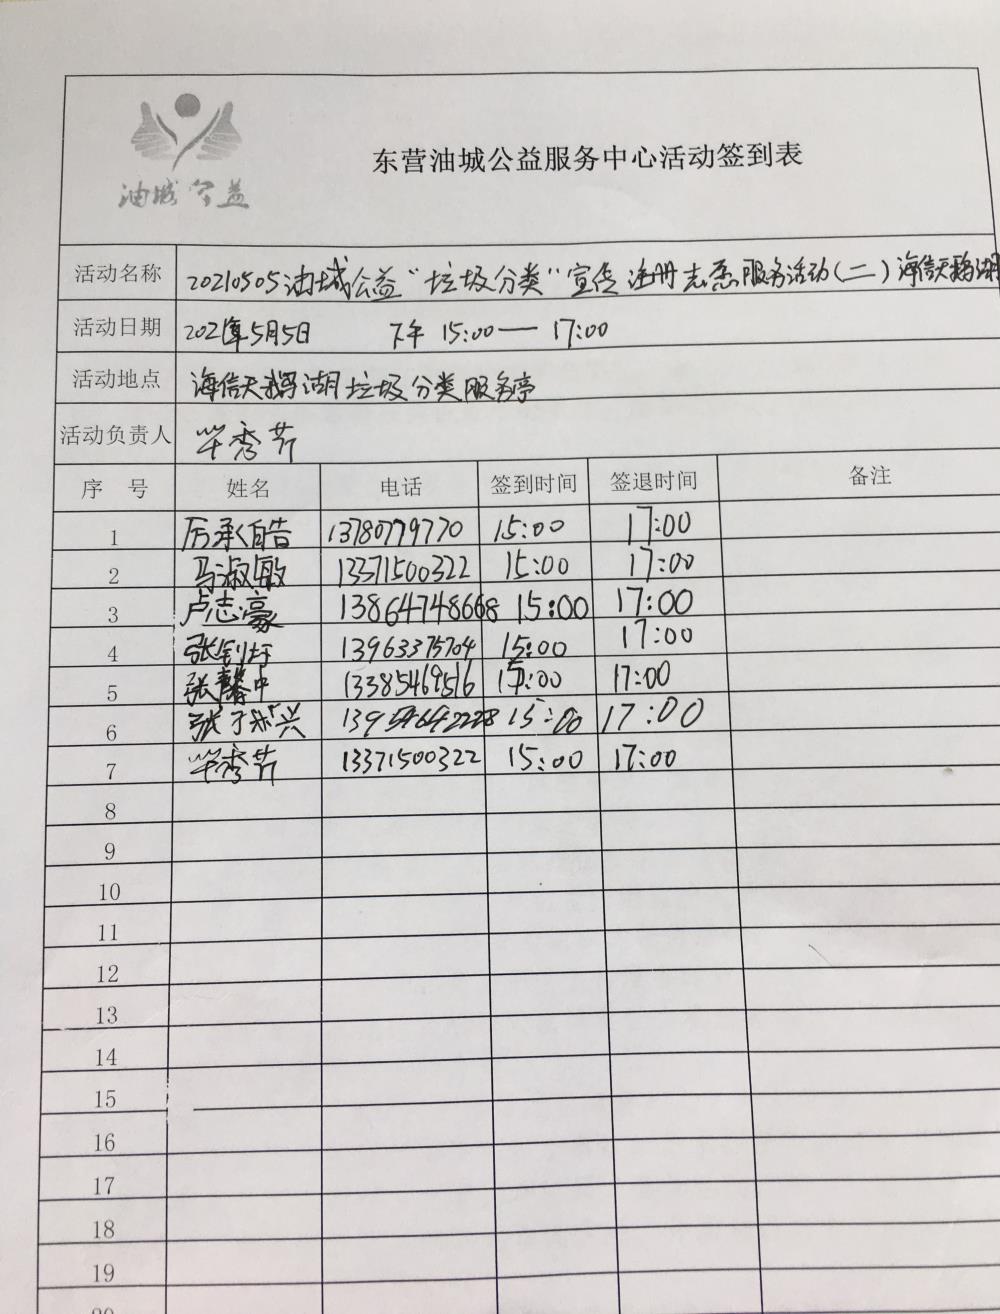 油城公益
东营油城公益服务中心活动签到表
活动名称 20210505油城公益“垃圾分类”宣传注册志愿服务活动(二)海信天鹅湖
活动日期 2021年5月5日 下午 15:00—17:00
活动地点 海信天鹅湖垃圾分类服务亭
活动负责人 毕秀芹
序号 姓名 电话 签到时间 签退时间 备注
1 厉承皓 13780779770 15:00 17:00
2 马淑敏 13371500322 15:00 17:00
3 卢志豪 13864748668 15:00 17:00
4 张钊圩 13963375704 15:00 17:00
5 张馨中 13385469516 15:00 17:00
6 张 兴 13954642228 15:00 17:00
7 毕秀芹 13371500322 15:00 17:00
8
9
10
11
12
13
14
15
16
17
18
19
20